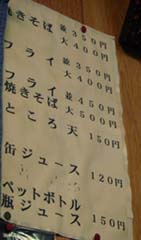 焼きそば 並 350円
大 400円
フライ 並 350円
大 400円
フライ
焼きそば 並 450円
大 500円
ところ天 150円
缶ジュース 120円
ペットボトル
瓶ジュース 150円